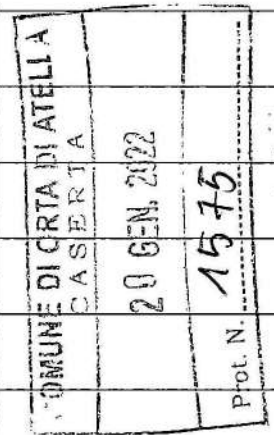 COMUNE DI ORTA DI ATELLA
CASERTA
20 GEN. 2022
Prot. N. 1575